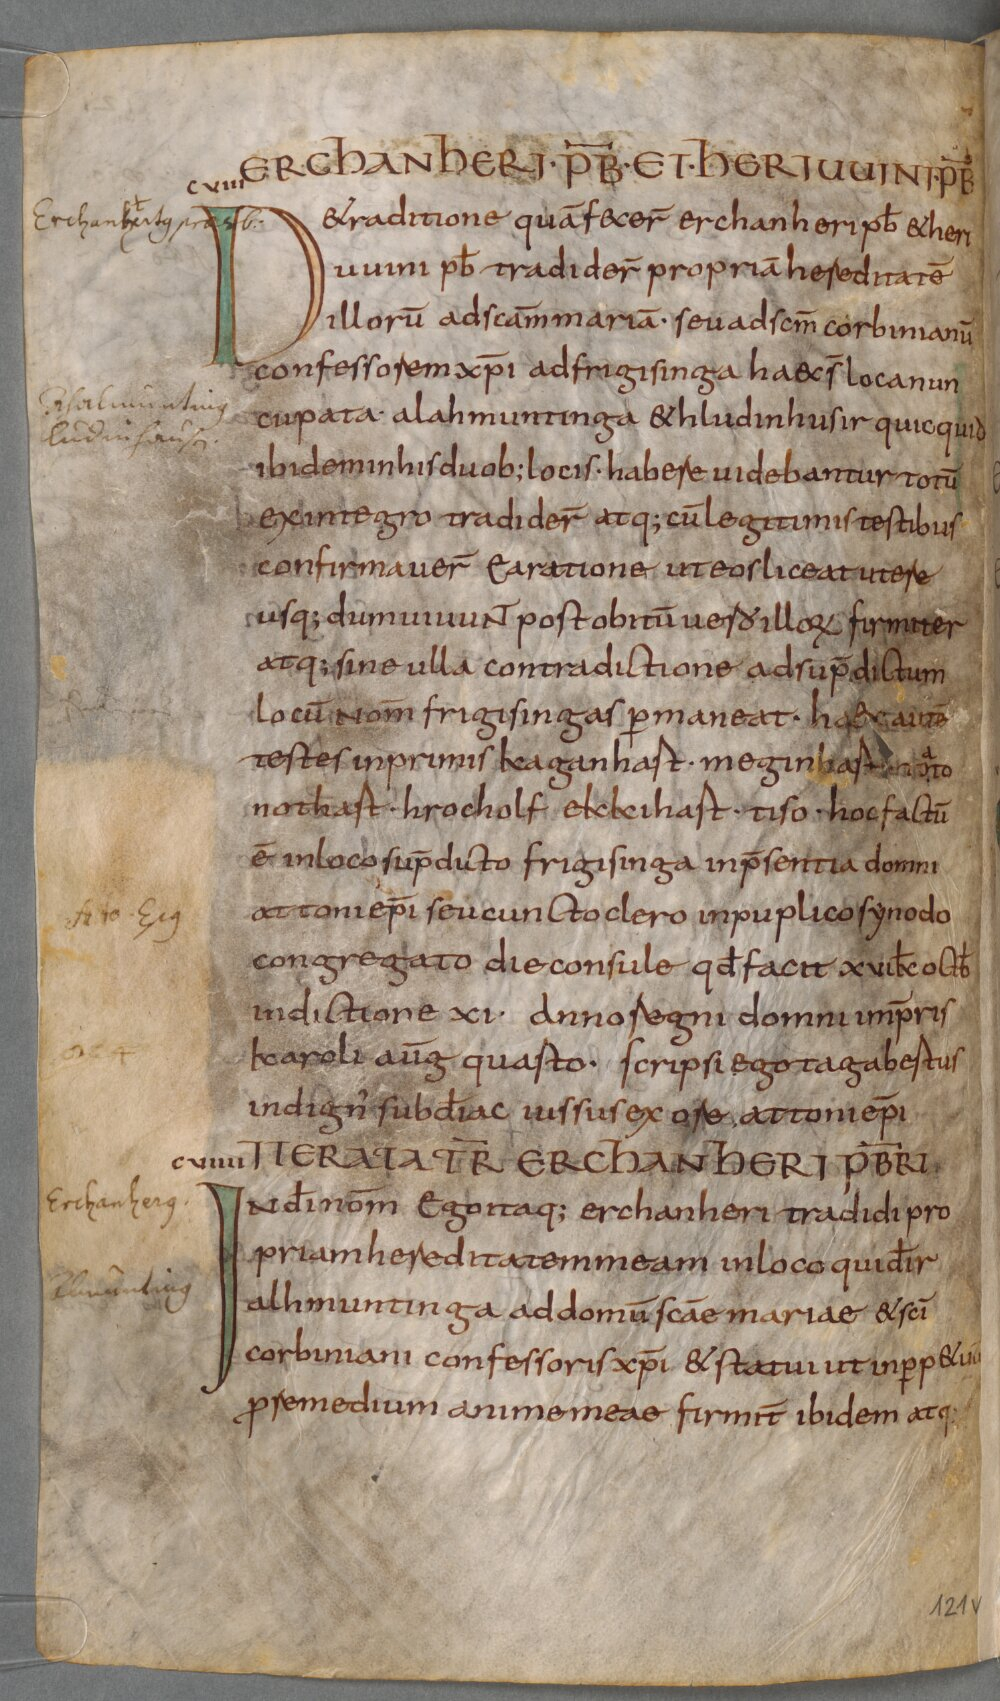 ERCHANHERI · P̄B̄ · ET · HERIUUINI · P̄B̄
cviii
Erchanbertg presb.
De traditione quā fecer̄ erchanheri pƀ & heri
uuini pƀ tradider̄ propriā hereditatē
illorū ad scām mariā · seu ad scm̄ corbinianū
confessorem xp̄i ad frigisinga haec s̄ loca nun
cupata · alahmuntinga & hludinhusir quicquid
ibidem in his duob; locis · habere uidebantur totū
ex integro tradider̄ atq; cū legitimis testibus
confirmauer̄ Ea ratione ut eos liceat utere
usq; dum uiuuNT̄ post obitū uero illoꝝ firmiter
atq; sine ulla contradictione ad sup̄dictum
locū nom̄ frigisingas ꝑmaneat · haec autē
testes inprimis kaganhart · meginhart
nothart · hrocholf ekkihart · tiso · hoc factū
ē in loco sup̄dicto frigisinga in p̄sentia domni
attoni ep̄i seu cuncto clero in puplico synodo
congregato die consule qd̄ facit xvi kƀ octƀ
indictione xi · Anno regni domni imp̄ris
karoli aūg quarto · scripsi ego tagabertus
indign̄ subdiac̄ iussus ex ore attoni ep̄i
cviiii ITERATA TR̄ ERCHANHERI P̄B̄RI
Erchanherg.
IN dī nom̄ Ego itaq; erchanheri tradidi pro
priam hereditatem meam in loco qui dr̄
alhmuntinga ad domū scāe mariae & scī
corbiniani confessoris xp̄i & statui ut in ꝑp&uū
ꝓ remedium anime meae firmit̄ ibidem atq;
121v